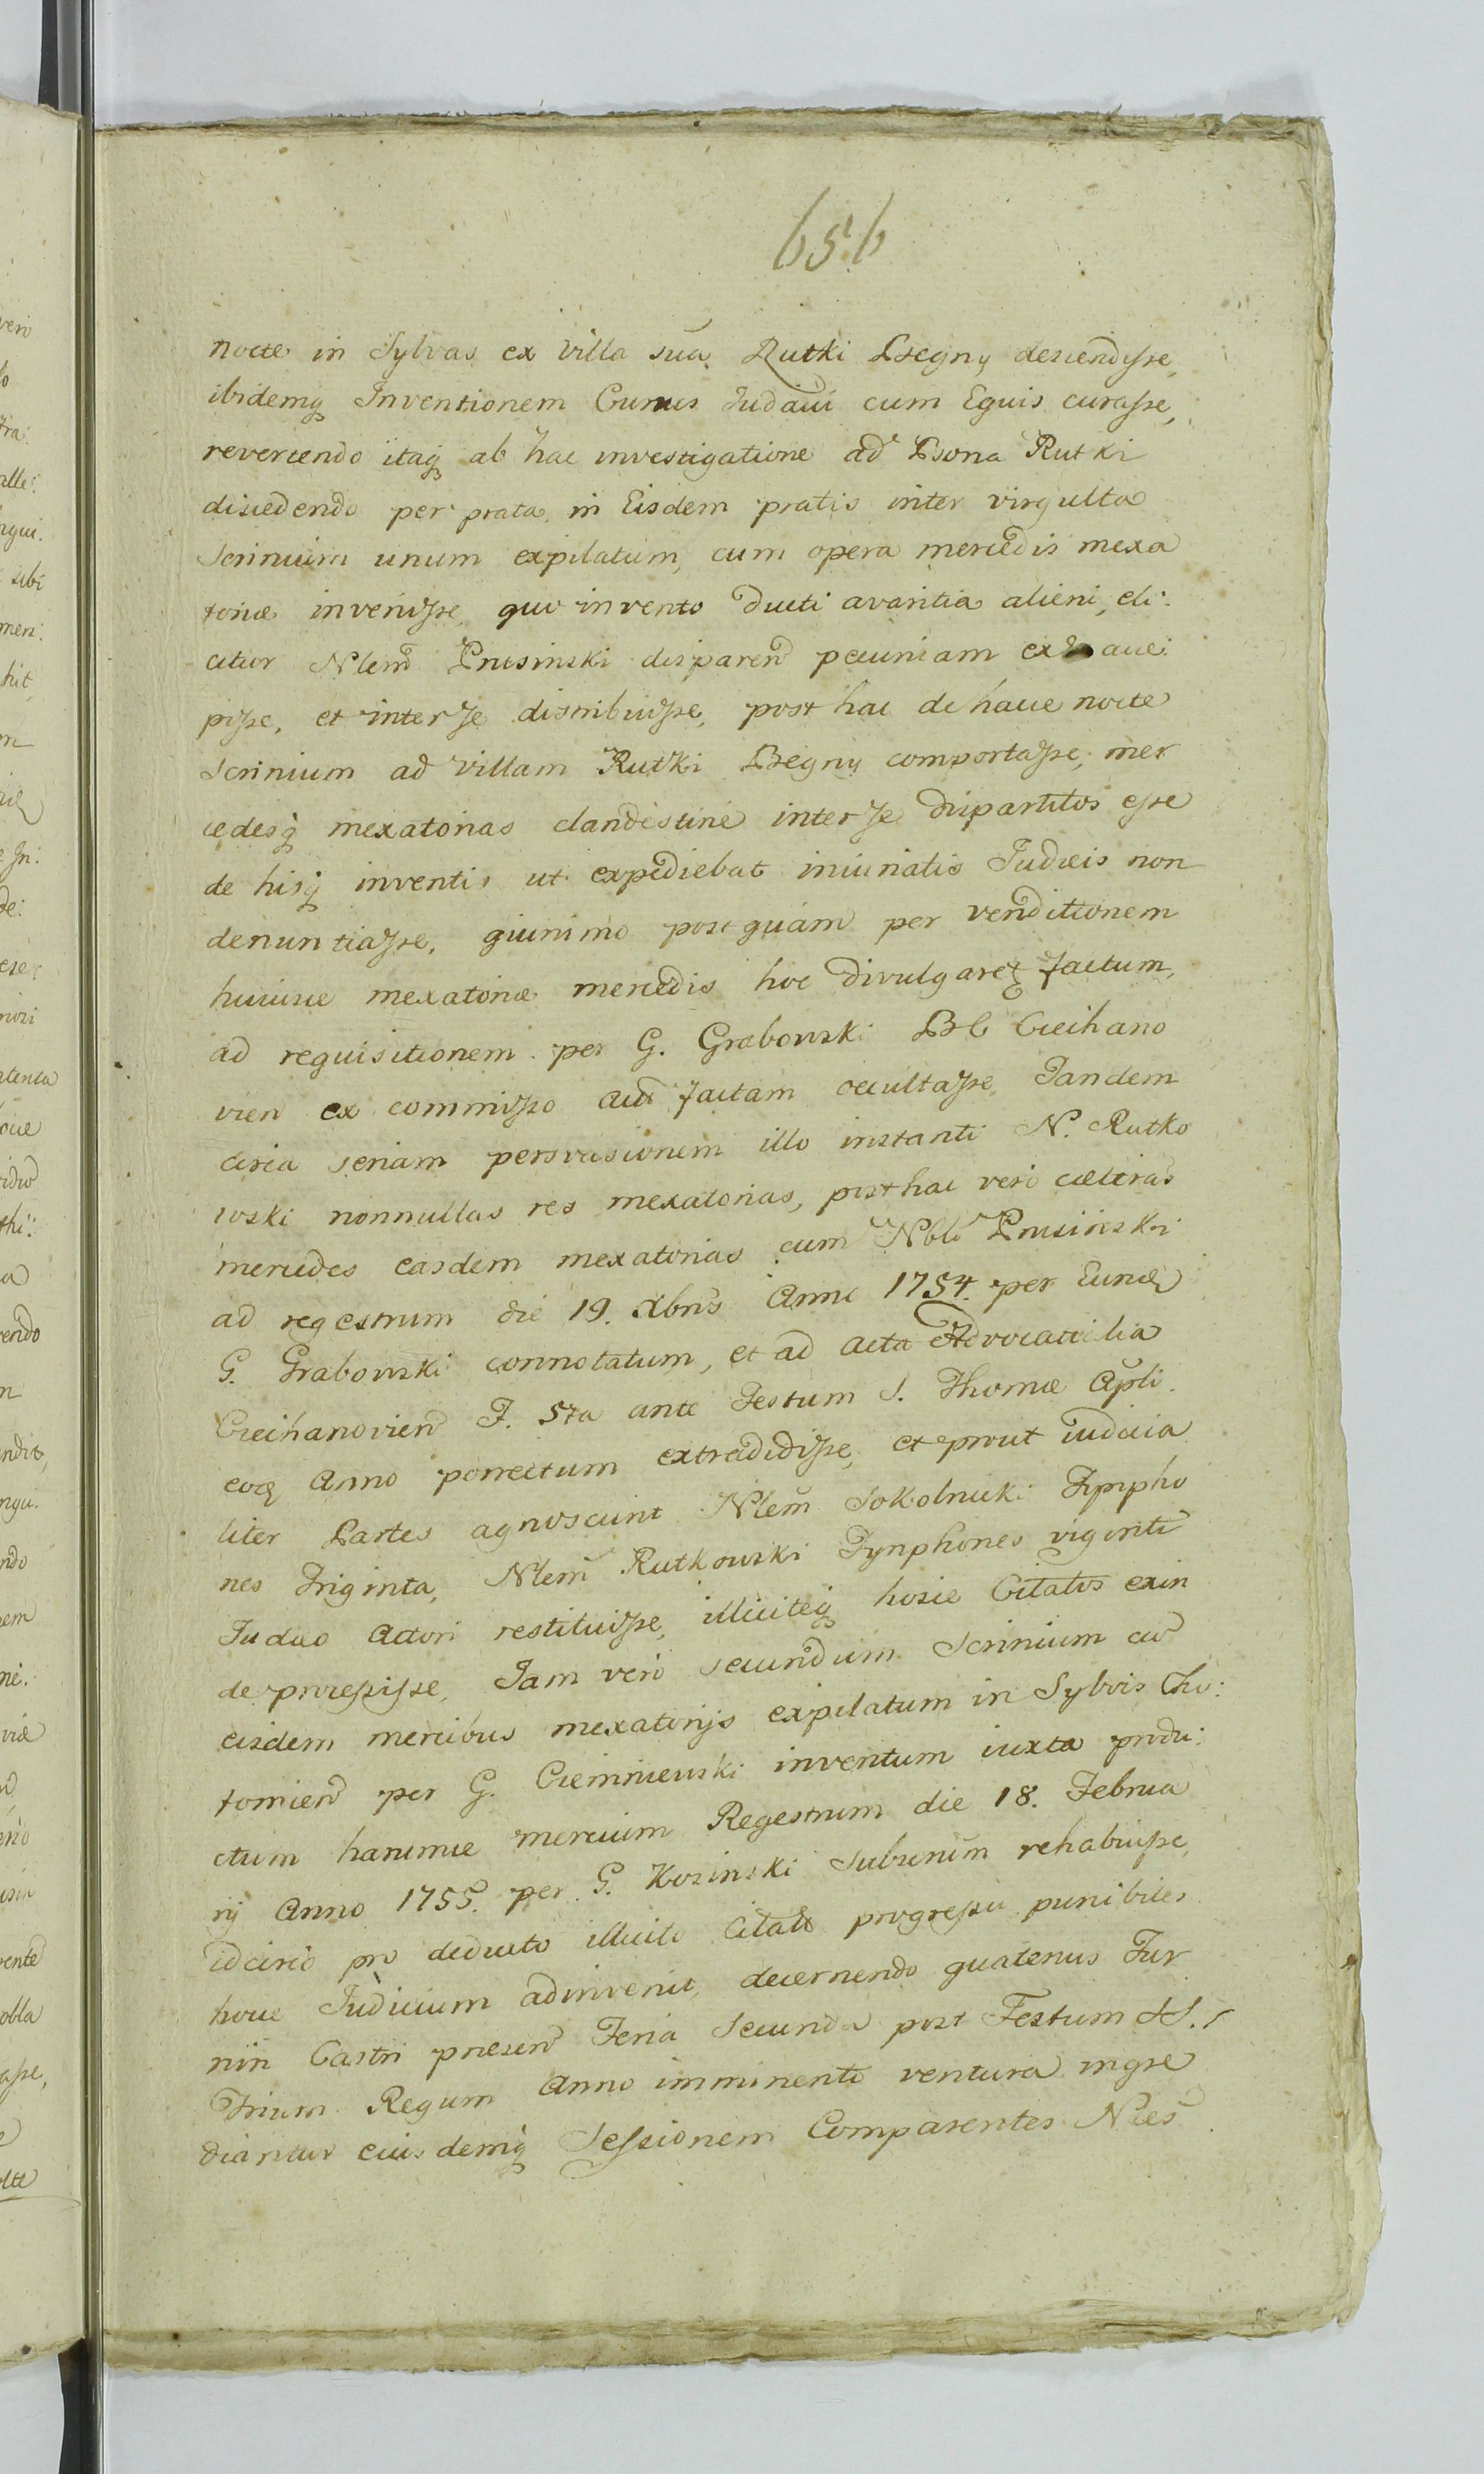 656
nocte in Sylvas ex villa sua Rutki Bregny descendisse,
ibidemq Inventionem Currus Judaici cum Equis curasse,
revertendo itaq ab hac investigatione ad bona Rutki
discedendo per prata in Eisdem pratis inter virgulta
Scrinium unum expilatum, cum opera mercedis mexa
toriæ invenisse, quo invento ducti avaritia alieni, eli:
citur Nlem Prusinski disparem pecuniam ex acce:
pisse, et inter se distribuisse, post hac de hacce nocte
Scrinium ad villam Rutki Bregny comportasse, mer
cedesq mexatorias clandestine inter se dispartitos esse
de hisq inventis ut expediebat iniuriatis Judæis non
denuntiasse, quinimo post quam per venditionem
huiusce mexatoriæ mercedis hoc divulgaret factum,
ad requisitionem per G. Grabowski BC Ciechano
vien ex commisso factam occultasse, Tandem
circa seriam persvasionem illo instanti N. Rutko
wski nonnullas res mexatorias, posthac vero cæteras
mercedes easdem mexatorias cum Nbli Prusinski
ad regestrum die 19. Xbris Anni 1754. per Eund
G. Grabowski connotatum, et ad Acta Advocatialia
Ciechanovien F. 5ta ante Festum S. Thomæ Apli.
eoq Anno porrectum extradidisse, et prout iudicia
liter Partes agnoscunt Nlem Sokolnicki Tympho
nes Triginta, Nlem Rutkowski Tynphones viginti
Judæo Actori restituisse, illiciteq hosce Citatos exin
de processisse, Jam vero secundum Scrinium cum
eisdem mercibus mexatorijs expilatum in Sylvis Cho:
tomien per G. Ciemniewski inventum iuxta produ:
ctum harumce mercium Regestrum die 18. Februa
rij Anno 1755. per G. Kosinski Subsenum rehabuisse,
idcirco pro deducto illicito Citatt progressu punibiles
hocce Judicium adinvenit, decernendo quatenus Tur
rim Castri præsen Feria Secunda post Festum SS.
Trium Regum Anno imminenti ventura ingre
diantur eiusdemq Sessionem Comparentes Nles